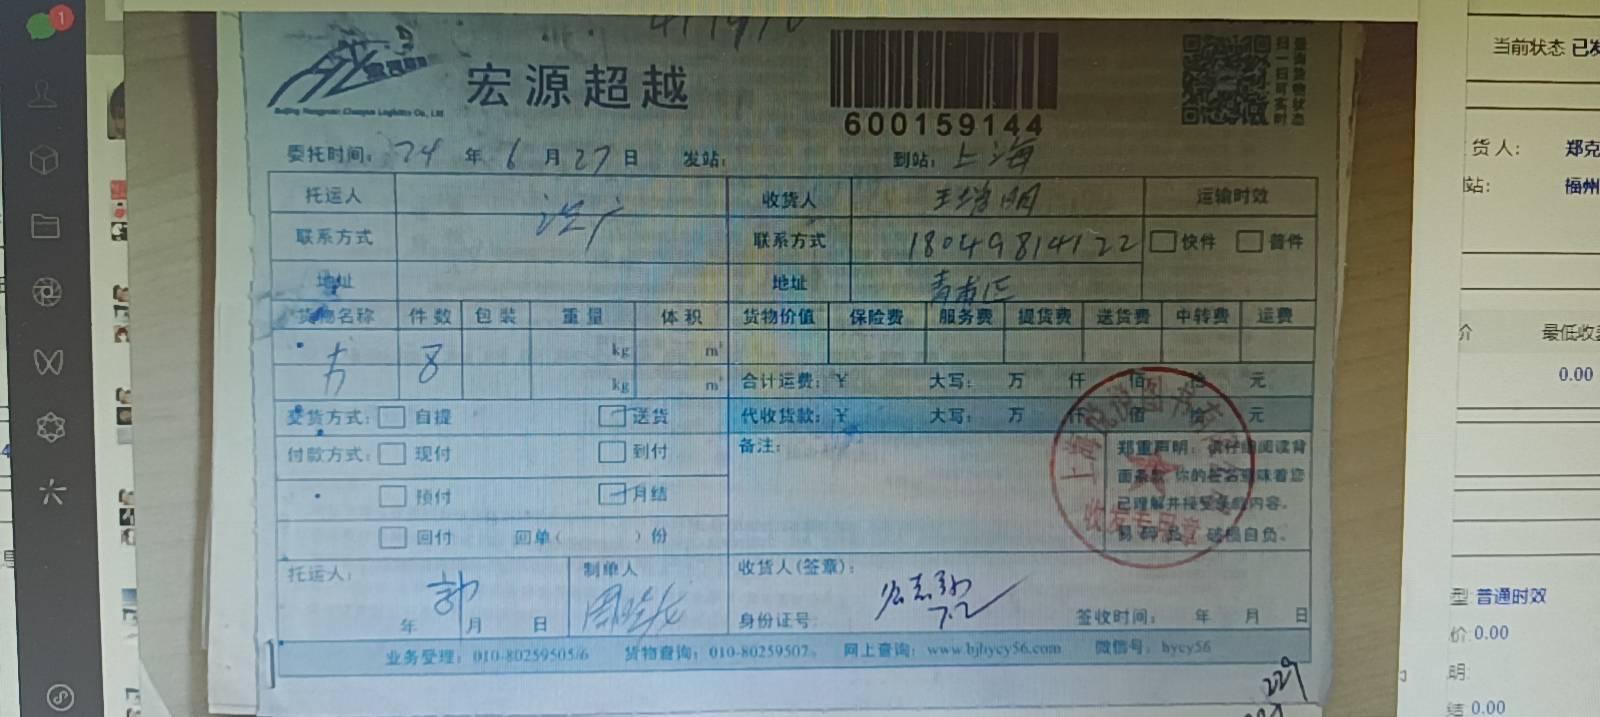 1
当前状态 已发
宏源超越
Beijing Hongyuan Chaoyue Logistics Co., Ltd
600159144
扫一扫可实时
查询货物状态
委托时间：24 年 6 月 27 日 发站： 到站：上海
货人： 郑克
站： 福州
托运人 收货人 运输时效
联系方式 联系方式 18049814122 快件 普件
地址 地址 青浦区
货物名称 件数 包装 重量 体积 货物价值 保险费 服务费 提货费 送货费 中转费 运费
8 kg m³
kg m³ 合计运费：¥ 大写： 万 仟 佰 拾 元
价 最低收
0.00
交货方式： 自提 送货 代收货款：¥ 大写： 万 仟 佰 拾 元
付款方式： 现付 到付 备注：
预付 月结
回付 回单( )份
郑重声明：请仔细阅读背
面条款 你的签名意味着您
已理解并接受条款内容。
易碎品 破损自负。
收发专用章
托运人： 制单人 收货人(签章)：
郭 7.2
年 月 日 身份证号： 签收时间： 年 月 日
业务受理：010-80259505/6 货物查询：010-80259507。 网上查询：www.bjhycy56.com 微信号：hycy56
229
型 普通时效
价: 0.00
明:
结 0.00